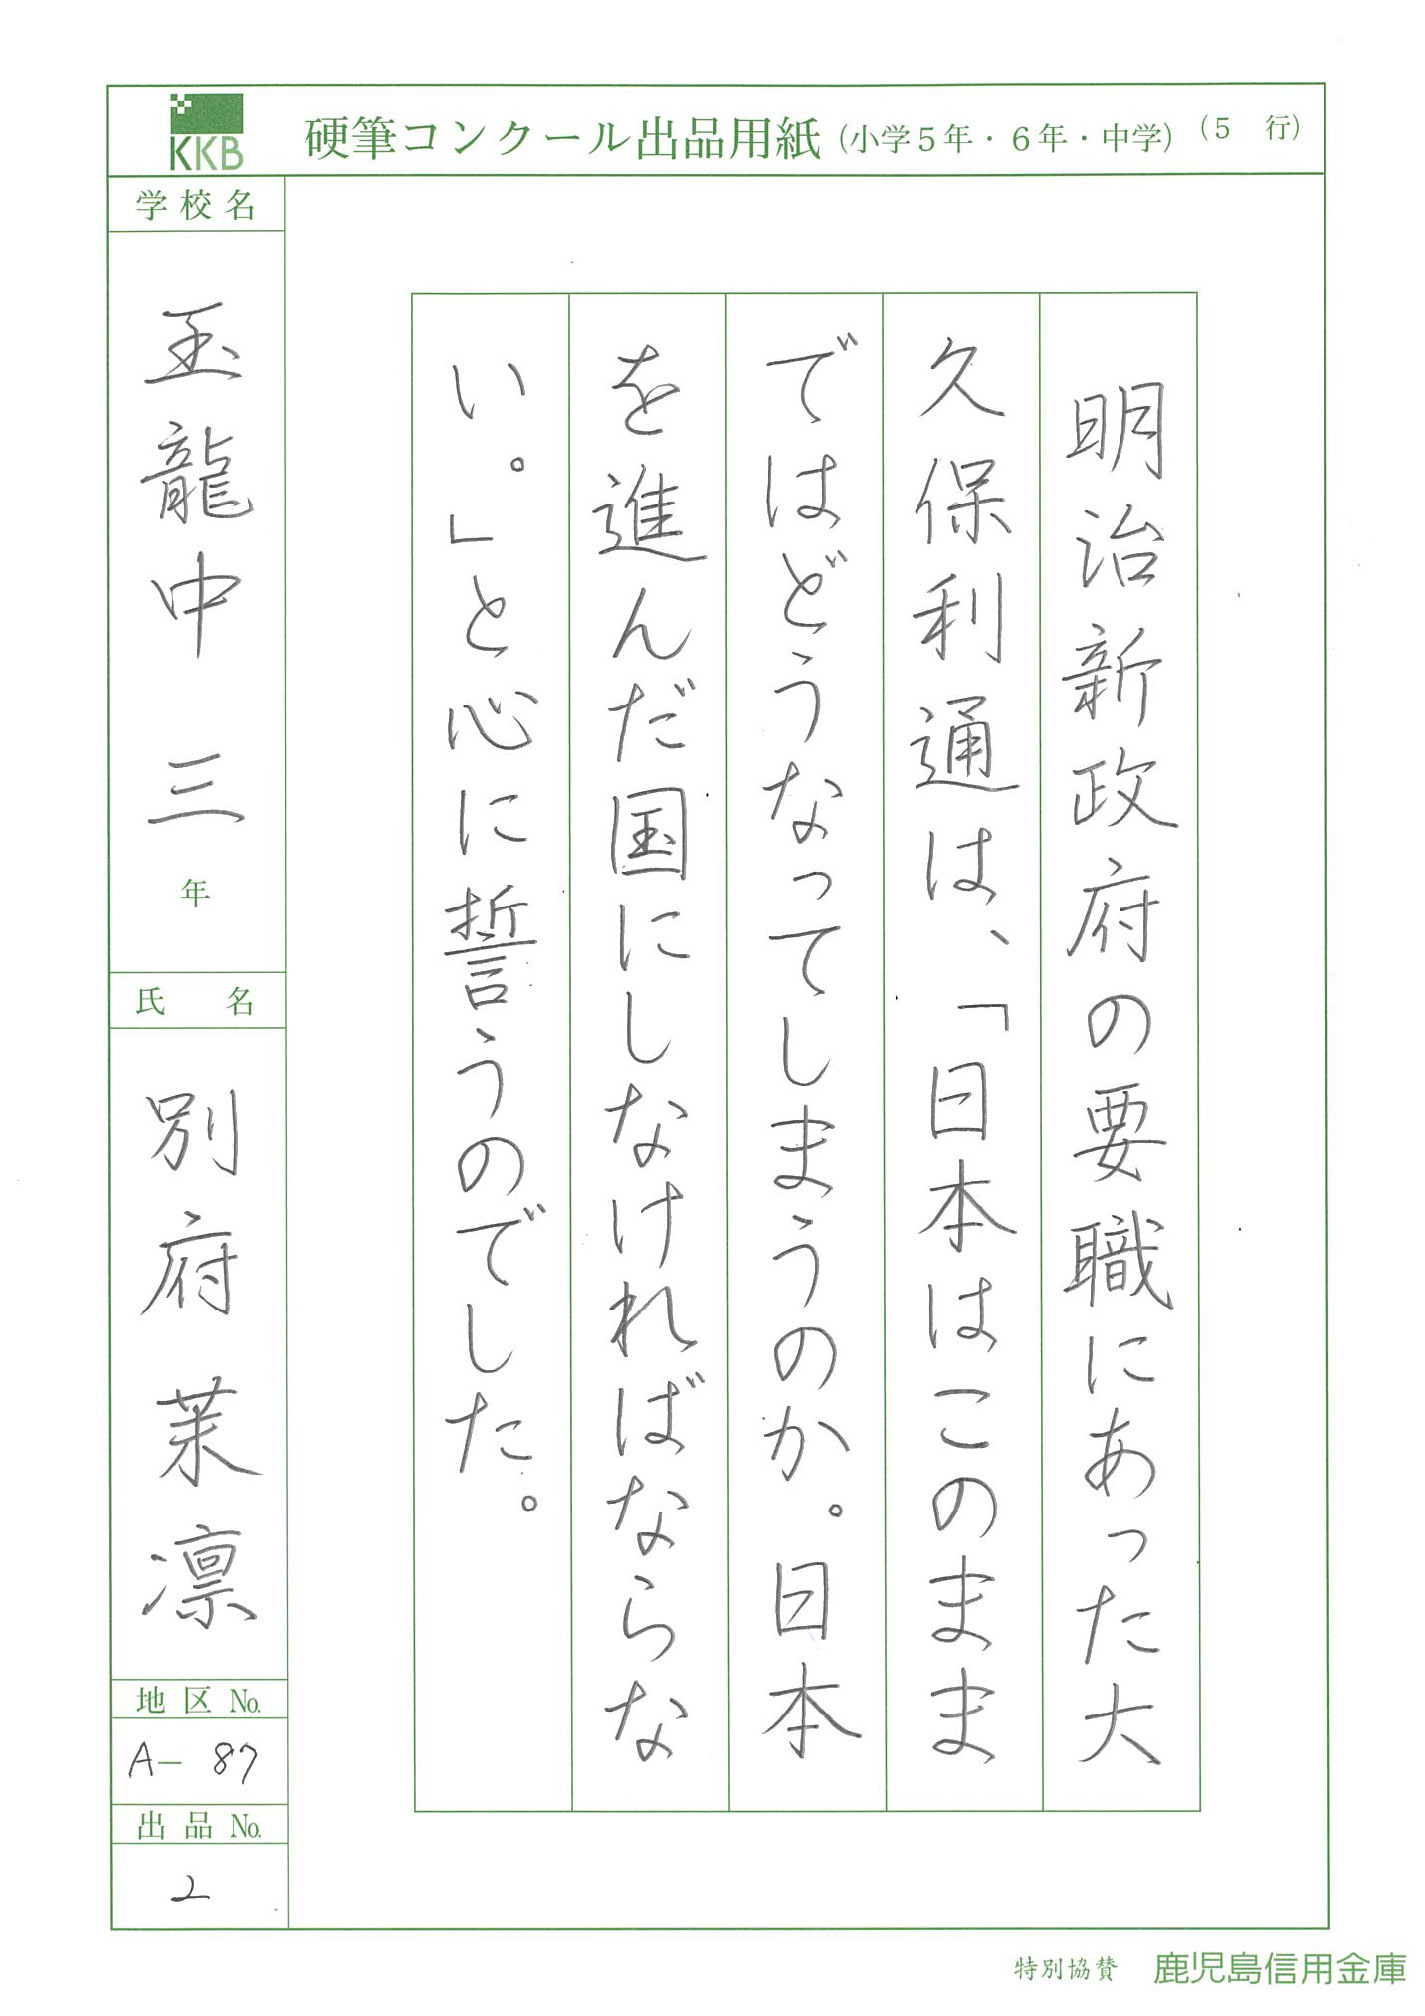 KKB
硬筆コンクール出品用紙(小学5年・6年・中学)(5 行)
明治新政府の要職にあった大
久保利通は、「日本はこのまま
ではどうなってしまうのか。日本
を進んだ国にしなければならな
い。」と心に誓うのでした。
学校名
玉龍中 三年
氏 名
別府 茉凛
地区 No.
A- 87
出品 No.
2
特別協賛 鹿児島信用金庫